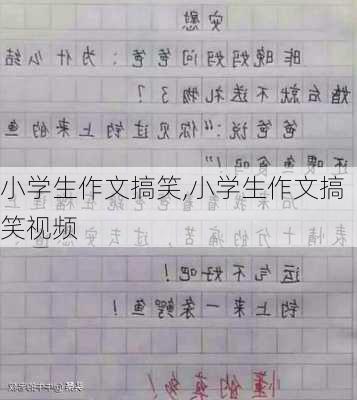 安慰
昨晚妈妈问爸爸：为什么结
婚后就不送礼物了？
爸爸说：“你见过钓上来的鱼
还喂鱼食吗”！
小学生作文搞笑,小学生作文搞
笑视频
表情十分的痛苦，过去安慰
运气不好吧！
钓上来一条鳄鱼！